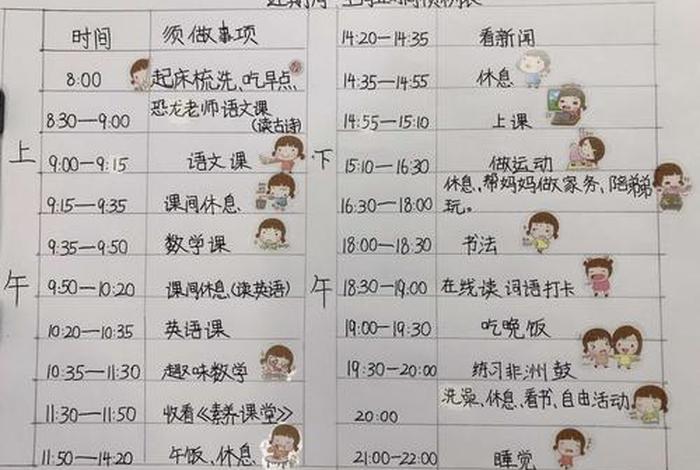 时间 须做事项
8:00 起床梳洗、吃早点
8:30—9:00 恐龙老师语文课
(读古诗)
上
9:00—9:15 语文课
9:15—9:35 课间休息
9:35—9:50 数学课
午
9:50—10:20 课间休息(读英语)
10:20—10:35 英语课
10:35—11:30 趣味数学
11:30—11:50 收看《素养课堂》
11:50—14:20 午饭、休息
14:20—14:35 看新闻
14:35—14:55 休息
14:55—15:10 上课
下
15:10—16:30 做运动
16:30—18:00 休息,帮妈妈做家务,陪弟弟
玩。
18:00—18:30 书法
午
18:30—19:00 在线读 词语打卡
19:00—19:30 吃晚饭
19:30—20:00 练习非洲鼓
20:00 洗澡、休息、看书、自由活动
21:00—22:00 睡觉